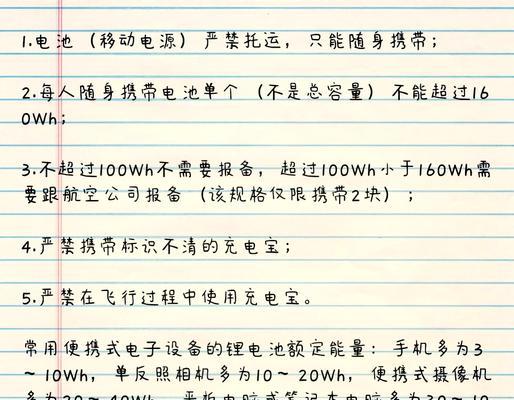 1.电池（移动电源）严禁托运，只能随身携带；
2.每人随身携带电池单个（不是总容量）不能超过16
0Wh；
3.不超过100Wh不需要报备，超过100Wh小于160Wh需
要跟航空公司报备（该规格仅限携带2块）；
4.严禁携带标识不清的充电宝；
5.严禁在飞行过程中使用充电宝。
常用便携式电子设备的锂电池额定能量：手机多为3
～10Wh，单反照相机多为10～20Wh，便携式摄像机
多为20～40Wh，平板电脑或笔记本电脑多为30～10